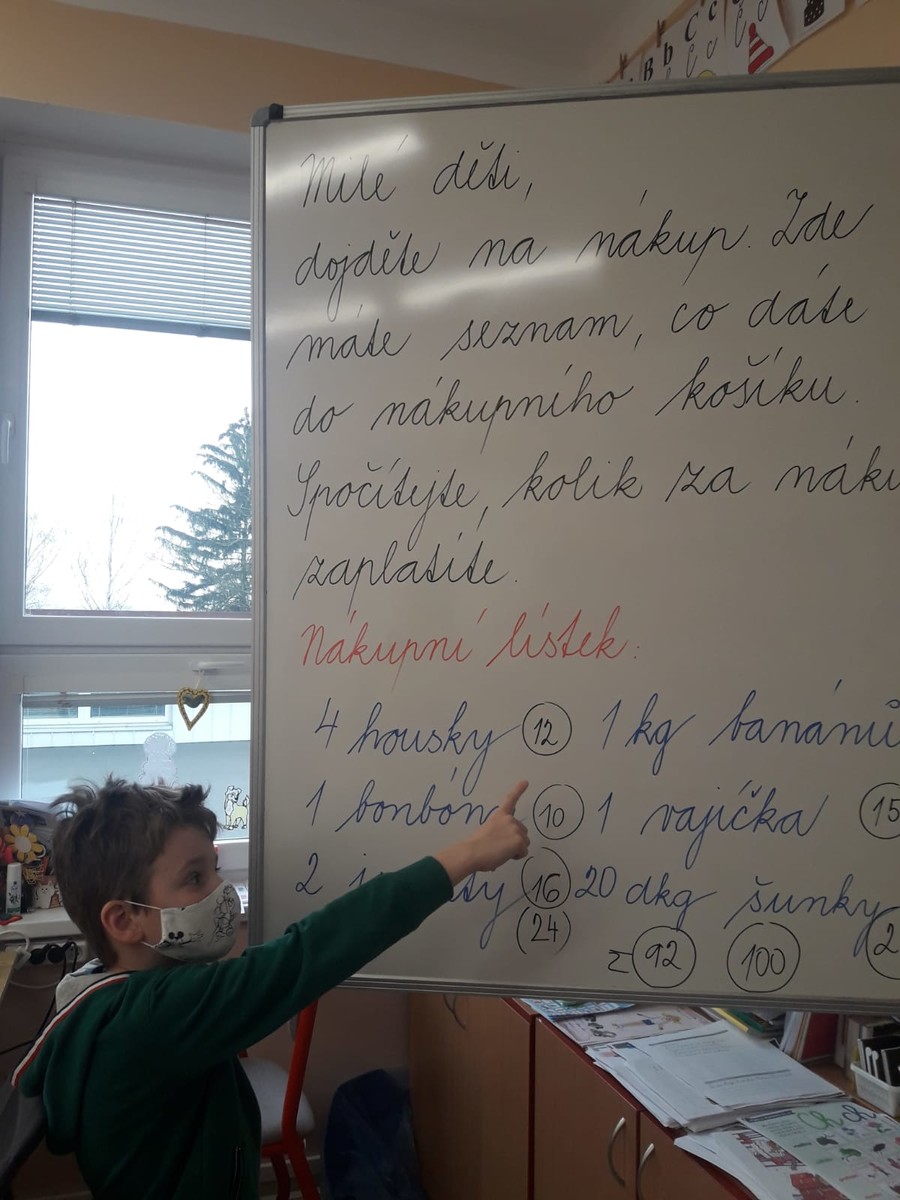 B b C c
Milé děti,
dojděte na nákup. Zde
máte seznam, co dáte
do nákupního košíku.
Spočítejte, kolik za náku
zaplatíte.
Nákupní lístek:
4 housky 12 1 kg banánů
1 bonbón 10 1 vajíčka 15
2 16 20 dkg šunky 2
(24) 92 100